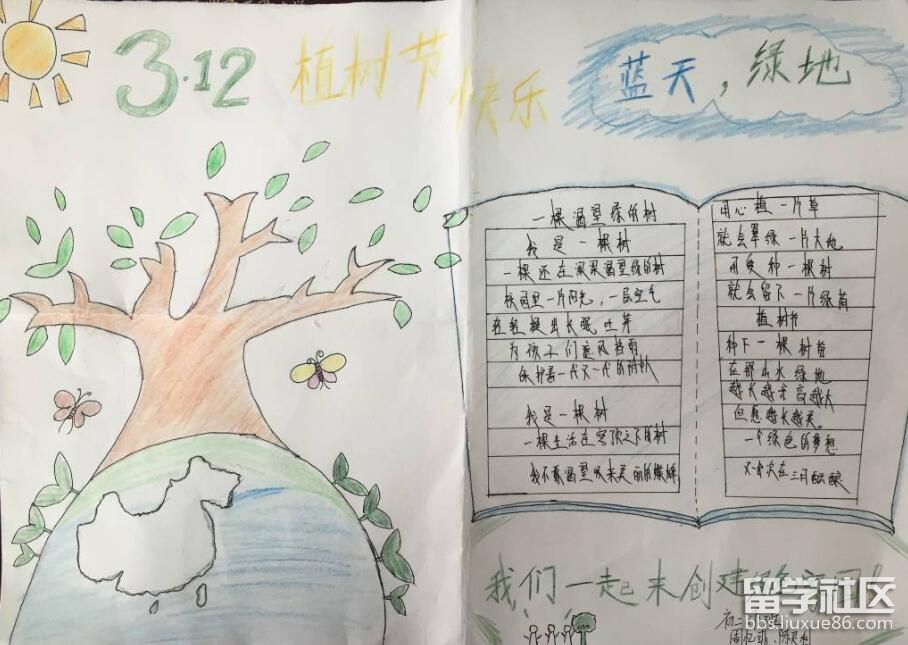 3.12 植树节快乐
蓝天，绿地
一棵渴望绿的树
我是一棵树
一棵还在深深渴望绿的树
校园里一片阳光，一层空气
轻轻挺出长眠吐芽
为孩子们遮风挡雨
保护着一代又一代的
我是一棵树
一棵生活在穹顶之下的树
我不敢渴望
用心植一片草
就会翠绿一片大地
用爱种一棵树
就会留下一片绿荫
植树节
种下一棵树苗
在那山水绿地
越长越高越大
但愿越长越美。
一个绿色的梦想
三月酝酿
我们一起来创建
留学社区
bbs.liuxue86.com